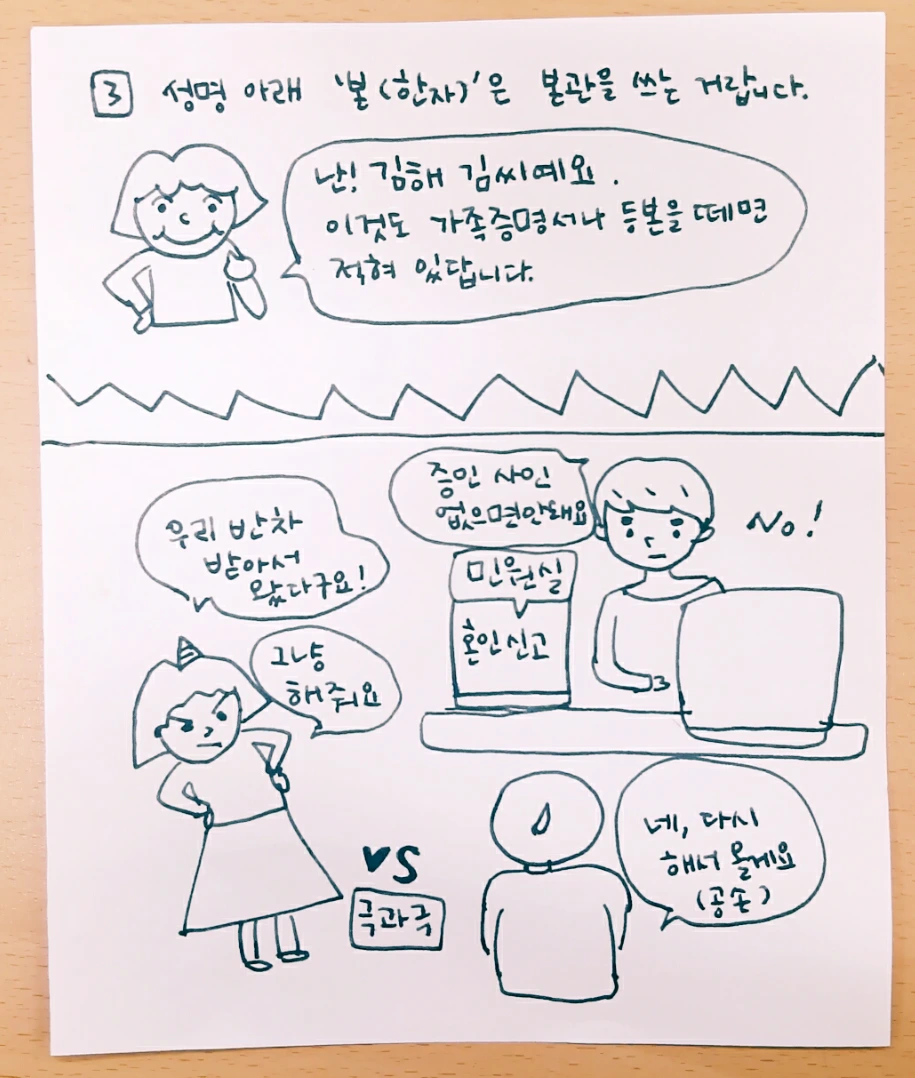 3 성명 아래 '본(한자)'은 본관을 쓰는 거랍니다.
난! 김해 김씨예요.
이것도 가족증명서나 등본을 떼면
적혀 있답니다.
증인 사인
없으면안돼요
No!
우리 반차
받아서
왔다구요!
민원실
혼인신고
그냥
해줘요
VS
극과극
네, 다시
해서 올게요
(공손)